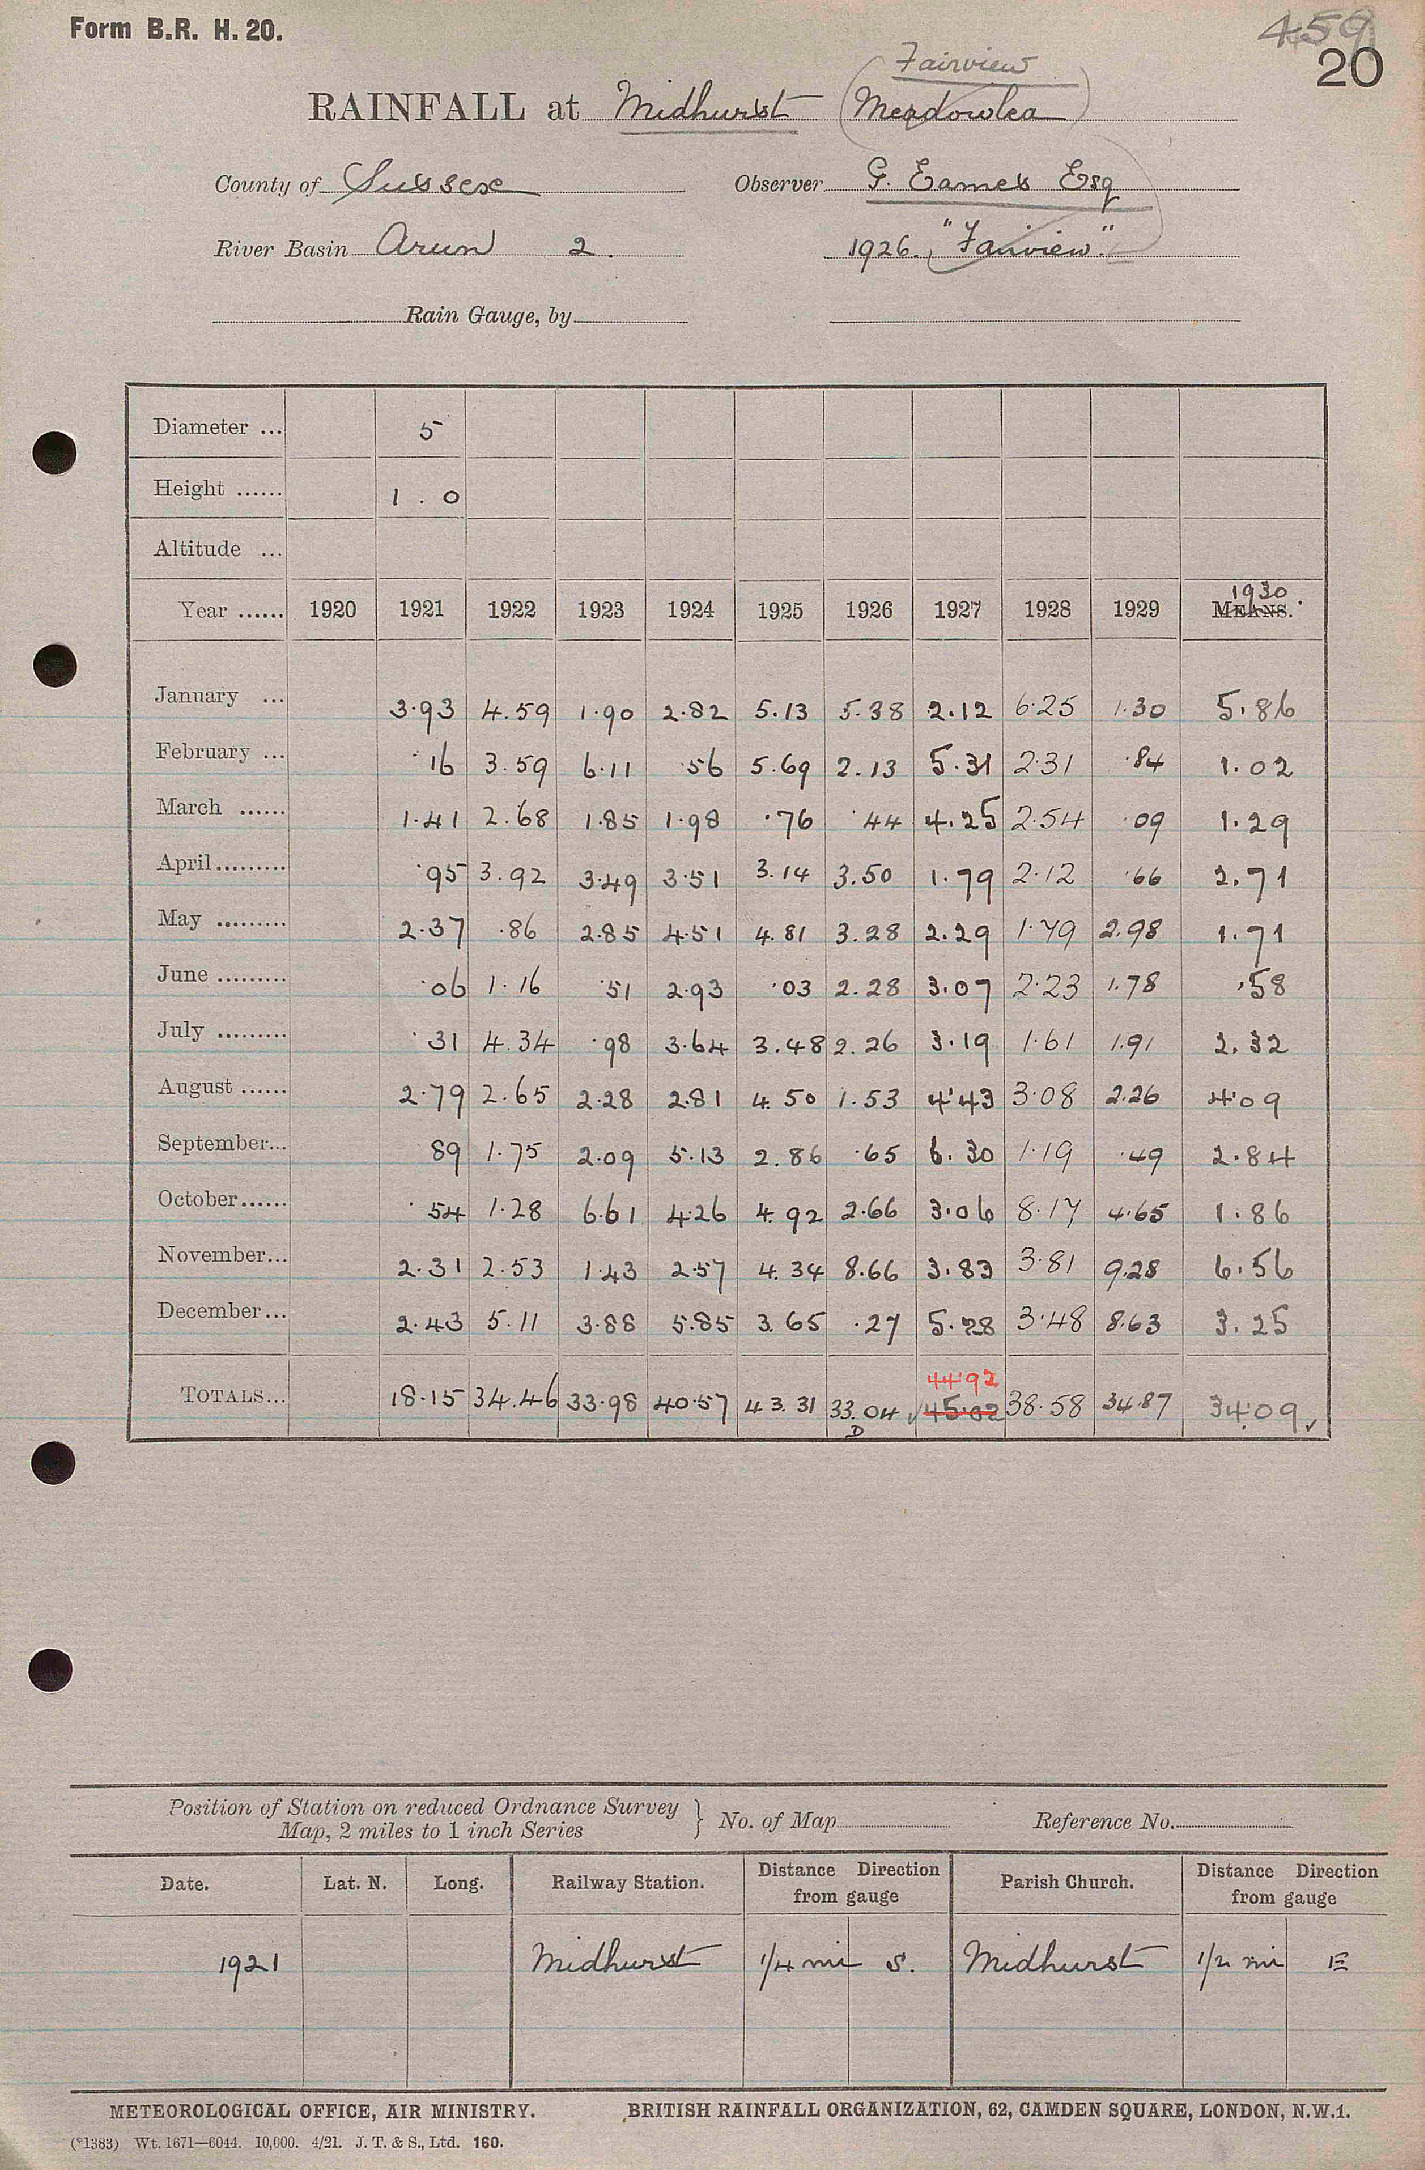 Form B.R. H. 20.
459
20
Fairview
RAINFALL at Midhurst (Meadowlea)
County of Sussex Observer G. Eames Esq
River Basin Arun 2. 1926. "Fairview".
Rain Gauge, by
Diameter ... 5
Height ...... 1 . 0
Altitude ...
1930
Year ...... 1920 1921 1922 1923 1924 1925 1926 1927 1928 1929 MEANS.
January ... 3.93 4.59 1.90 2.82 5.13 5.38 2.12 6.25 1.30 5.86
February ... .16 3.59 6.11 .56 5.69 2.13 5.31 2.31 .84 1.02
March ...... 1.41 2.68 1.85 1.98 .76 .44 4.25 2.54 .09 1.29
April......... .95 3.92 3.49 3.51 3.14 3.50 1.79 2.12 .66 2.71
May ......... 2.37 .86 2.85 4.51 4.81 3.28 2.29 1.79 2.98 1.71
June ......... .06 1.16 .51 2.93 .03 2.28 3.07 2.23 1.78 .58
July ......... .31 4.34 .98 3.64 3.48 2.26 3.19 1.61 1.91 2.32
August ...... 2.79 2.65 2.28 2.81 4.50 1.53 4.43 3.08 2.26 4.09
September... 89 1.75 2.09 5.13 2.86 .65 6.30 1.19 .49 2.84
October...... .54 1.28 6.61 4.26 4.92 2.66 3.06 8.17 4.65 1.86
November... 2.31 2.53 1.43 2.57 4.34 8.66 3.83 3.81 9.28 6.56
December... 2.43 5.11 3.88 5.85 3.65 .27 5.28 3.48 8.63 3.25
44.92
TOTALS... 18.15 34.46 33.98 40.57 43.31 33.04 ✓ 45.02 38.58 34.87 34.09 ✓
D
Position of Station on reduced Ordnance Survey
Map, 2 miles to 1 inch Series } No. of Map Reference No.
Date. Lat. N. Long. Railway Station. Distance Direction from gauge Parish Church. Distance Direction from gauge
1921 Midhurst 1/4 mi S. Midhurst 1/2 mi E
METEOROLOGICAL OFFICE, AIR MINISTRY. BRITISH RAINFALL ORGANIZATION, 62, CAMDEN SQUARE, LONDON, N.W.1.
(*1383) Wt. 1671—6044. 10,000. 4/21. J. T. & S., Ltd. 160.